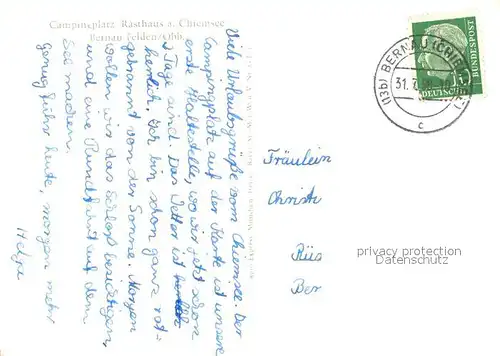 Campingplatz Rasthaus a. Chiemsee
Bernau Felden/Obb.
Viele Urlaubsgrüße vom Chiemsee. Der
Campingplatz auf der Karte ist unsere
erste Haltestelle, wo wir jetzt schon
Tage sind. Das Wetter ist
herrlich, ich bin schon ganz rot-
gebrannt von der Sonne. Morgen
wollen wir das Schloß besichtigen,
und eine Rundfahrt auf dem
See machen.
Genug für heute, morgen mehr
Helga
(13b) BERNAU (CHIEMSEE)
31.7.
c
DEUTSCHE
BUNDESPOST
10
Fräulein
Christ
Rüs
Ber
privacy protection
Datenschutz